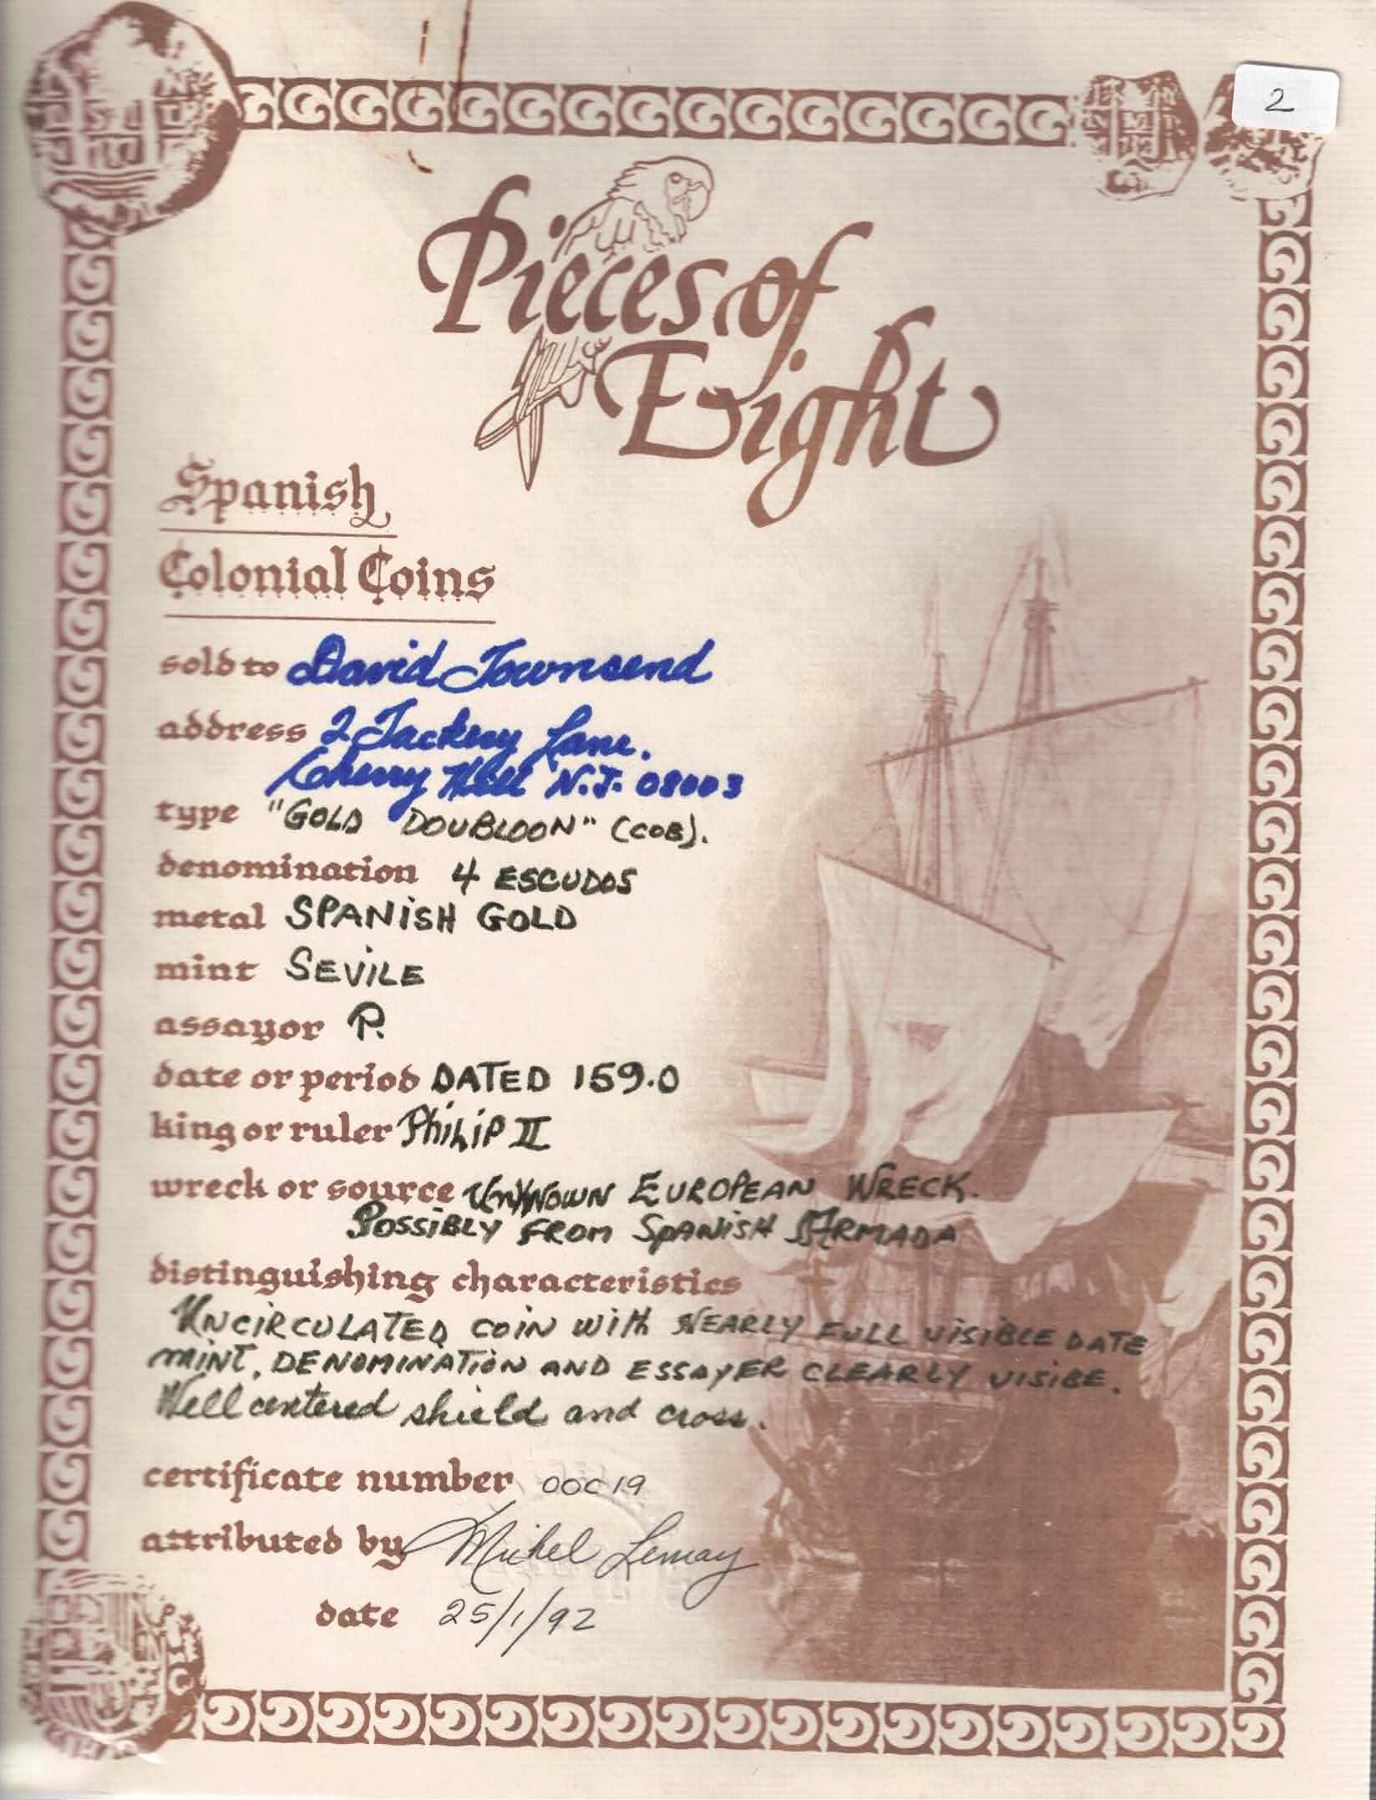 2
Pieces of
Eight
Spanish
Colonial Coins
sold to David Townsend
address 2 Tackery Lane.
Cherry Hill N.J. 08003
type "GOLD DOUBLOON" (COB).
denomination 4 ESCUDOS
metal SPANISH GOLD
mint SEVILE
assayor P.
date or period DATED 159.0
king or ruler PhiLiP II
wreck or source UNKNOWN EUROPEAN WRECK.
POSSIBLY FROM SPANISH ARMADA
distinguishing characteristics
UNCIRCULATED COIN WITH NEARLY FULL VISIBLE DATE
MINT, DENOMINATION AND ESSAYER CLEARLY VISIBE.
Well centered shield and cross.
certificate number 00C19
attributed by Michel Lemay
date 25/1/92